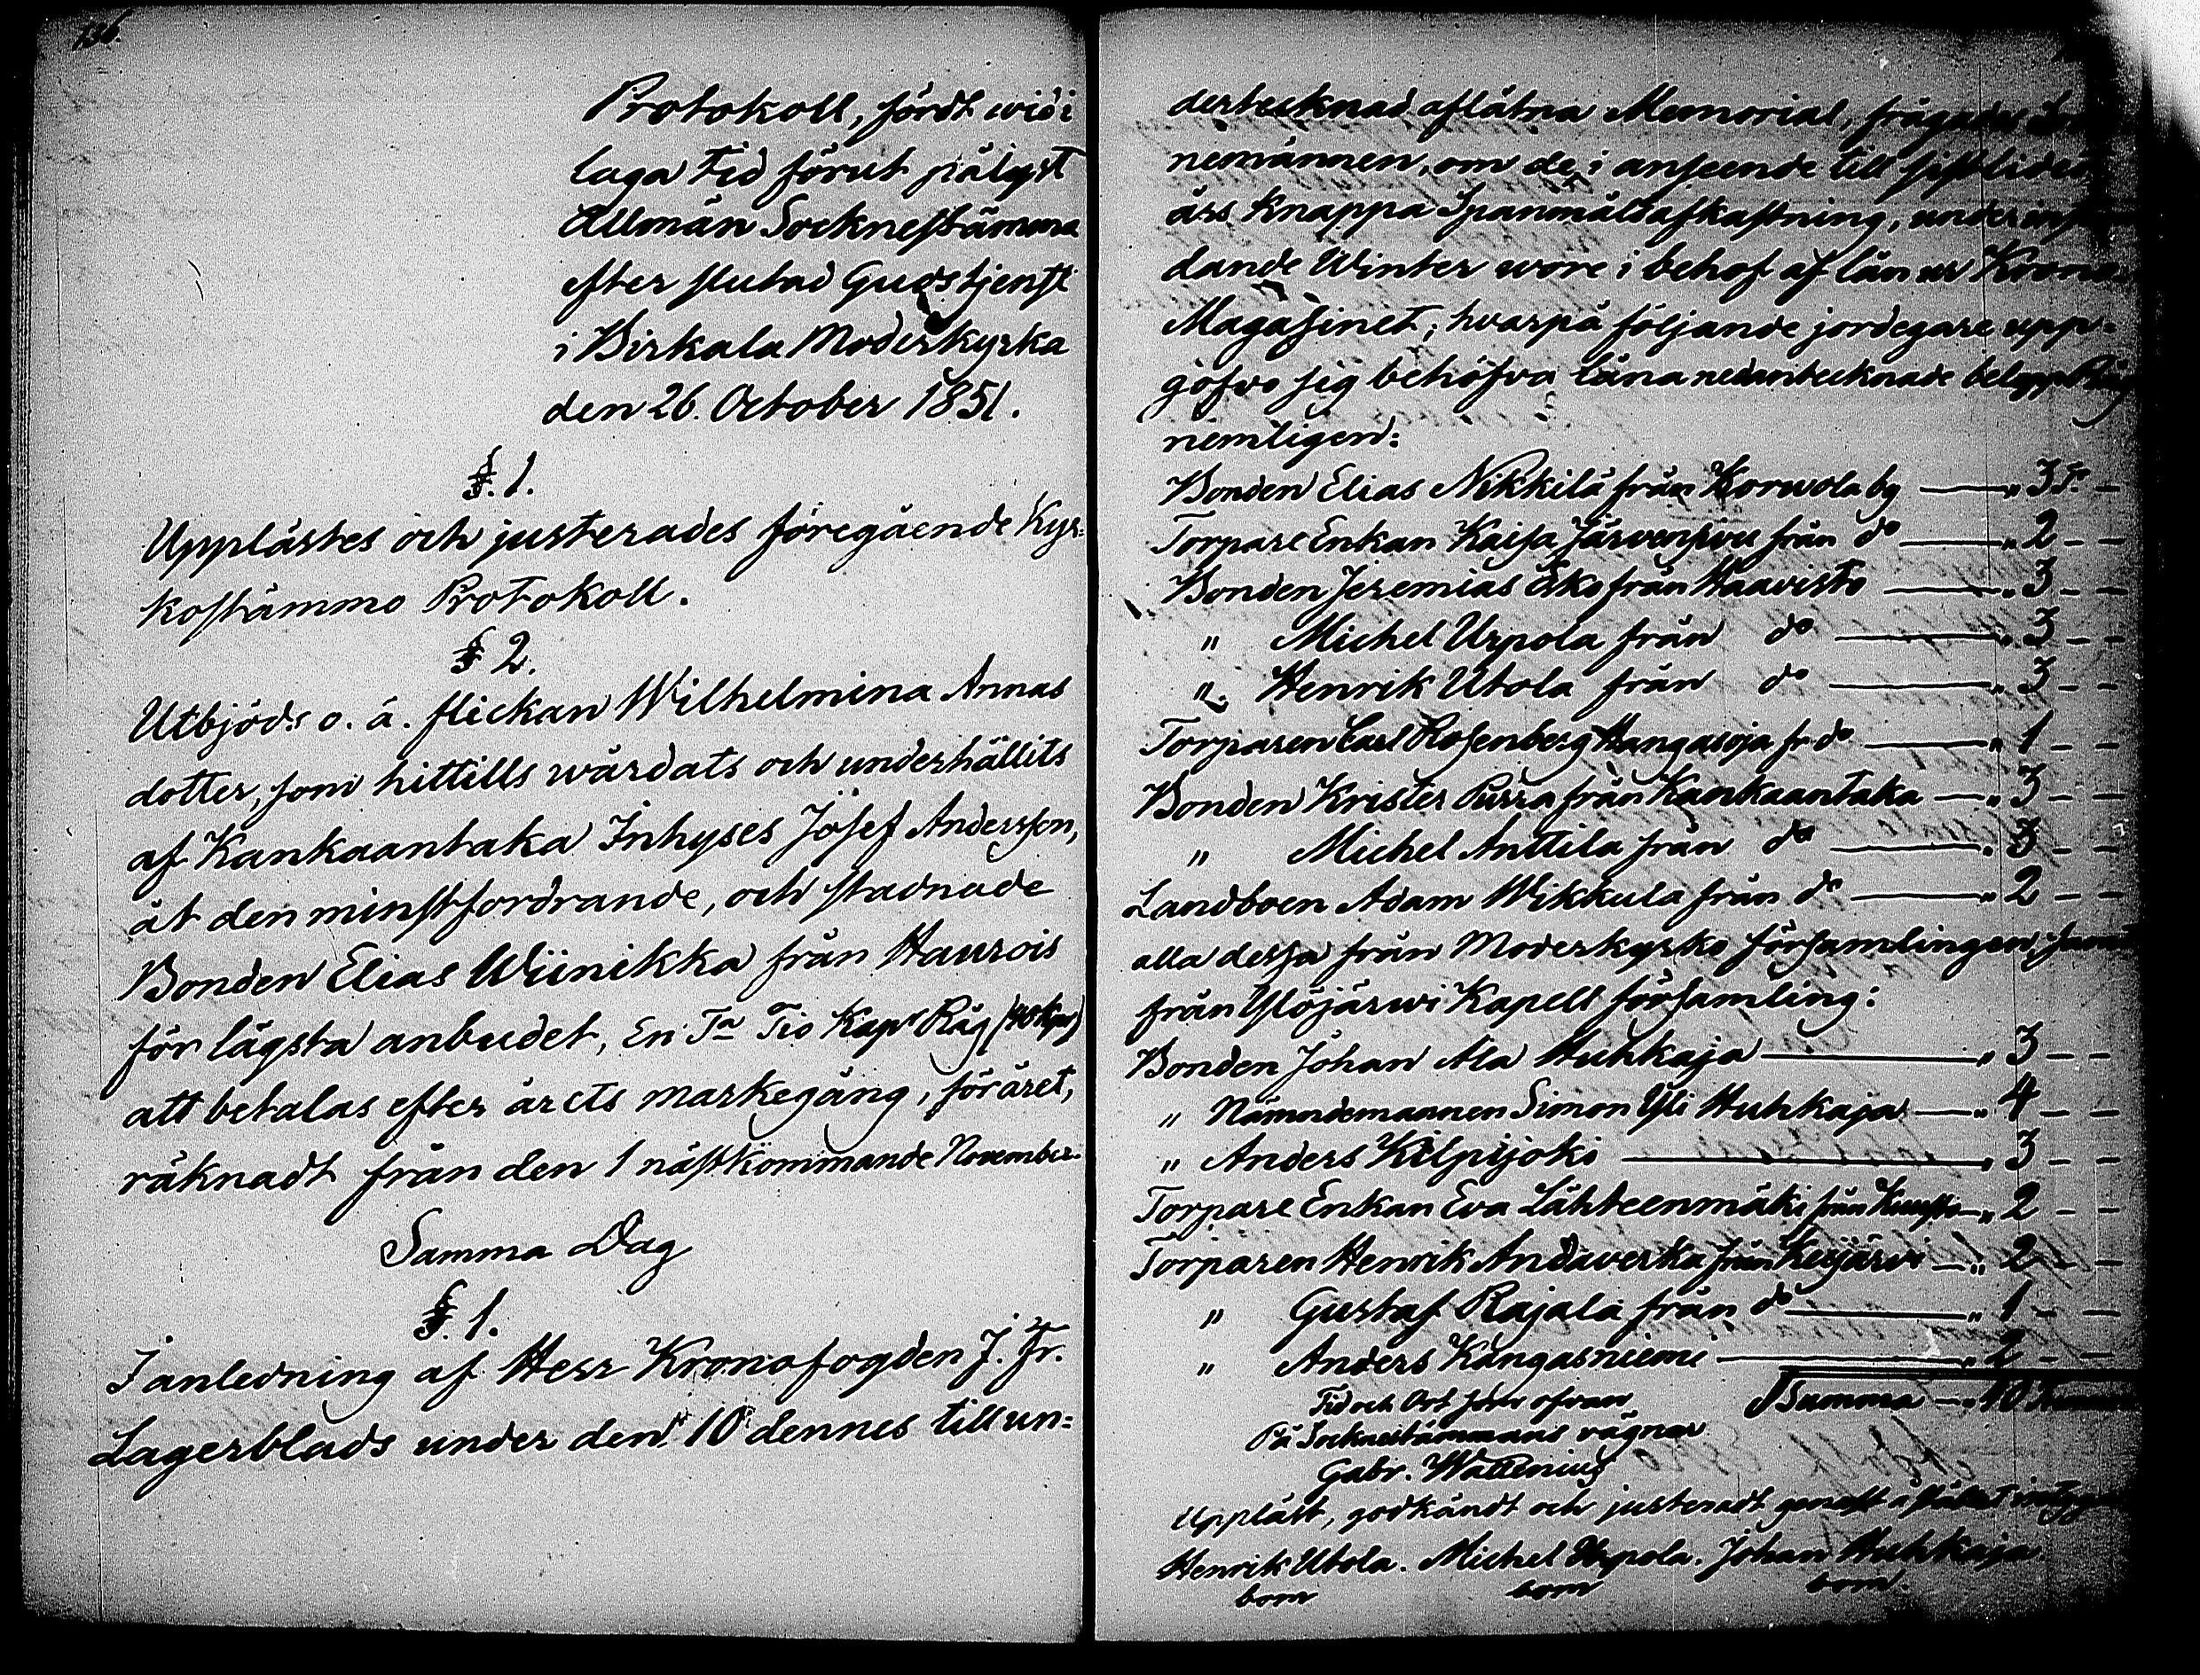 136.
Protokoll, fördt wid i
laga tid förut pålyst
Allmän Sockneståmma
efter slutad Gudstjenst
i Birkala Moderkyrka
den 26. October 1851.
§. 1.
Upplästes och justerades föregående Kyr=
kostämmo Protokoll.
§ 2.
Utbjöds o. ä. flickan Wilhelmina Annas
dotter, som hittills wårdats och underhållits
af Kankaantaka Inhyses Josef Andersson,
åt den minstfordrande, och stadnade
Bonden Elias Wiinikka från Haurois
för lägsta anbudet, En Ta Tio Kapr Råg (40 kpr)
att betalas efter årets markegång, för året,
räknadt från den 1 nästkommande November.
Samma Dag
§. 1.
I anledning af Herr Kronofogden J. Fr.
Lagerblads under den 10 dennes till un=
dertecknad aflåtna Memorial, frågades
nemännen, om de, i anseende till sistlidet
års knappa Spanmålsafkastning, under
dande Winter wore i behof af lån ur Krono
Magasinet; hvarpå följande jordegare upp=
gofvo sig behöfva låna nedantecknade belopp Råg
nemligen:
Bonden Elias Nikkilä från Korwola by — „ 3 T. —
Torpare Enkan Kaisa Järvensivu från do — „ 2 — —
Bonden Jeremias Esko från Haavisto — „ 3 — —
„ Michel Uzpola från do — „ 3 — —
„ Henrik Utola från do — „ 3 — —
Torparen Carl Rosenberg Kangasoja fr do — „ 1 — —
Bonden Krister Purra från Kankaantaka — „ 3 — —
„ Michel Anttila från do — „ 3 — —
Landboen Adam Wikkula från do — „ 2 — —
alla dessa från Moderkyrko församlingen, samt
från Ylöjärwi Kapell församling:
Bonden Johan Ala Huhkaja — „ 3 — —
„ Nämndemannen Simon Yli Huhkaja — „ 4 — —
„ Anders Kilpijoki — „ 3 — —
Torpare Enkan Eva Lähteenmäki från — „ 2 — —
Torparen Henrik Andaverka från Keijärvi — „ 2 — —
„ Gustaf Rajala från do — „ 1 — —
„ Anders Kangasniemi — „ 2 — —
Tid och Ort som ofvan Summa — „ 40
På Sockneståmmans vägnar
Gabr. Wallenius
Uppläst, godkändt och justeradt genast å stället
Henrik Utola. Michel Uzpola. Johan Huhkaja.
bom bom bom.